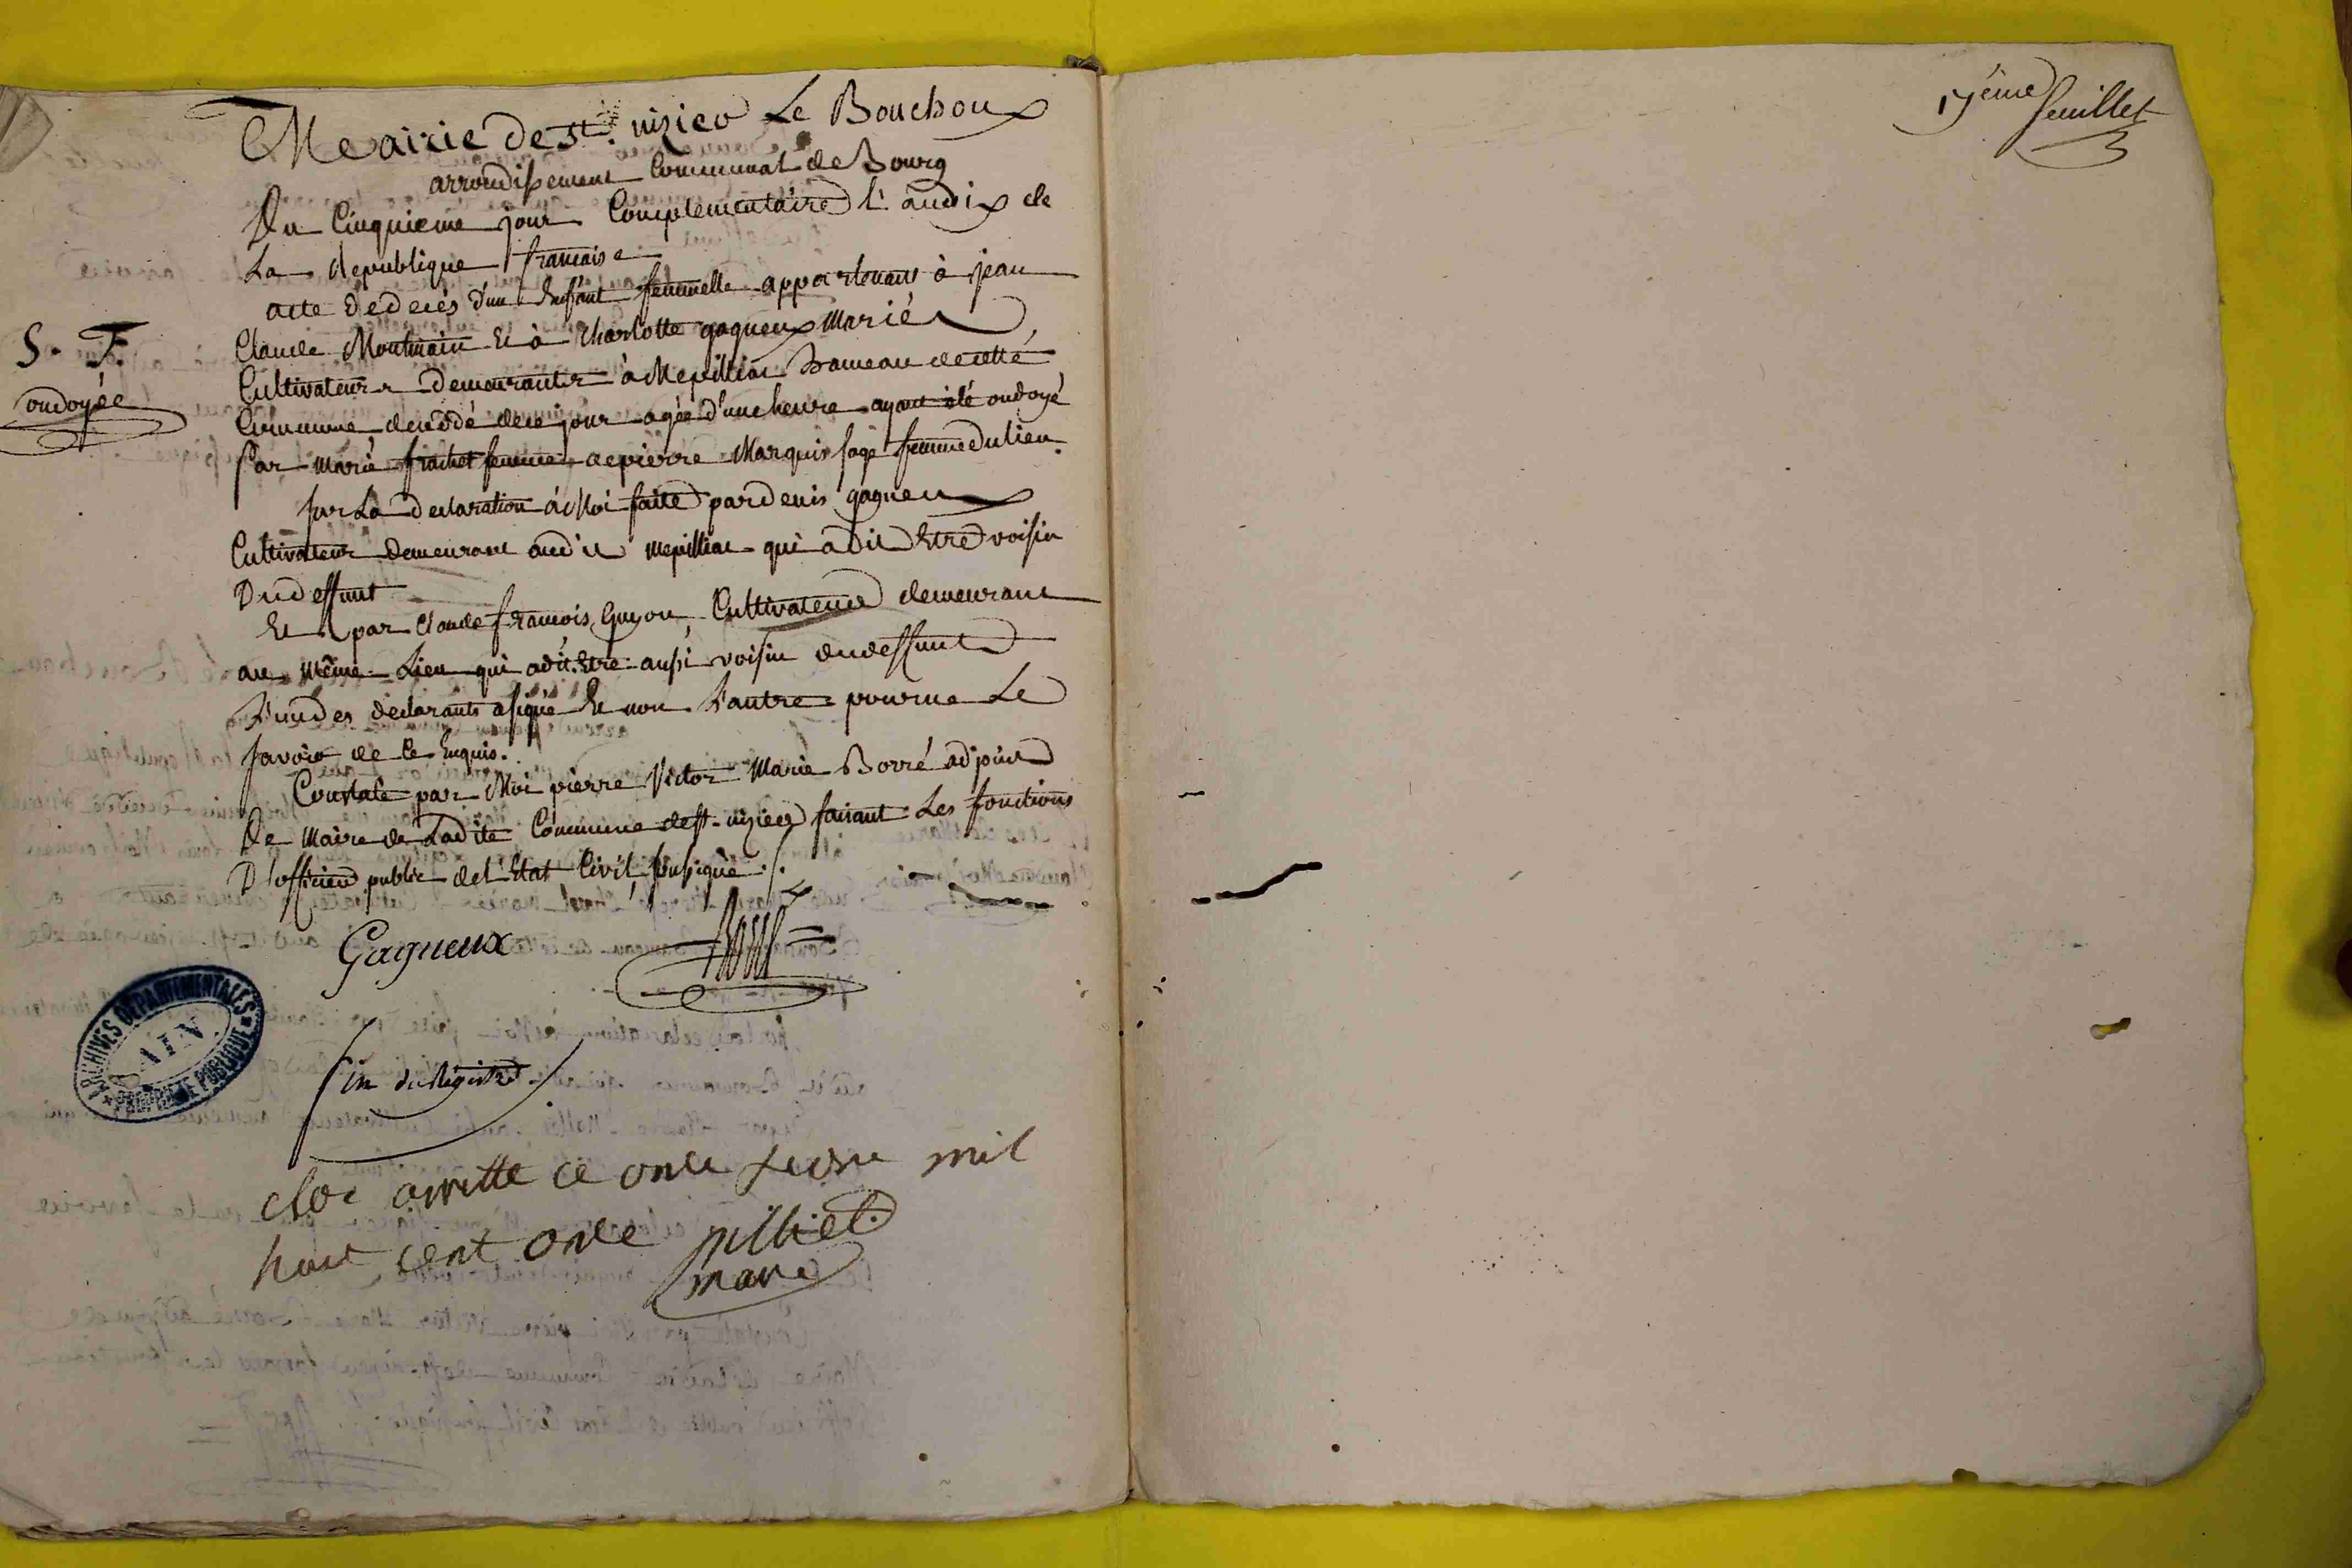 Meairie de St. nizier Le Bouchoux
arrondissement Communal de Bourg
Du Cinquieme jour Complementaire l'an dix de
La Republique francaise
acte de decès d'un Enfant femmelle appartenant à jean
Claude Montmain Et à Charlotte gagneux Mariés
S. F.
ondoyée
Cultivateurs demeurants à Mepilliat hameau de cette
Commune decedé de ce jour agée d'une heure ayant été ondoyé
Par Marie frachet femme de pierre Marquis sage femme du lieu.
Sur La declaration à Moi faite par denis gagneux
Cultivateur demeurant audit mepilliat qui a dit Etre voisin
Du deffunt
Et par Claude francois Guyon, Cultivateur demeurant
au même Lieu qui a dit Etre aussi voisin du deffunt
L'un des declarants a signé Et non L'autre pour ne Le
savoir de ce Enquis.
Constaté par Moi pierre Victor Marie Borré adjoint
De Maire de Ladite Commune de st. nizier faisant Les fonctions
D'officier public de l'Etat Civil soussigné ./.
Gagneux Borré
ARCHIVES DÉPARTEMENTALES
AIN
PROPRIÉTÉ PUBLIQUE
fin du Registre ./
clos arrette ce onze mil
huit cent onze pilliet
maire
ième feuillet